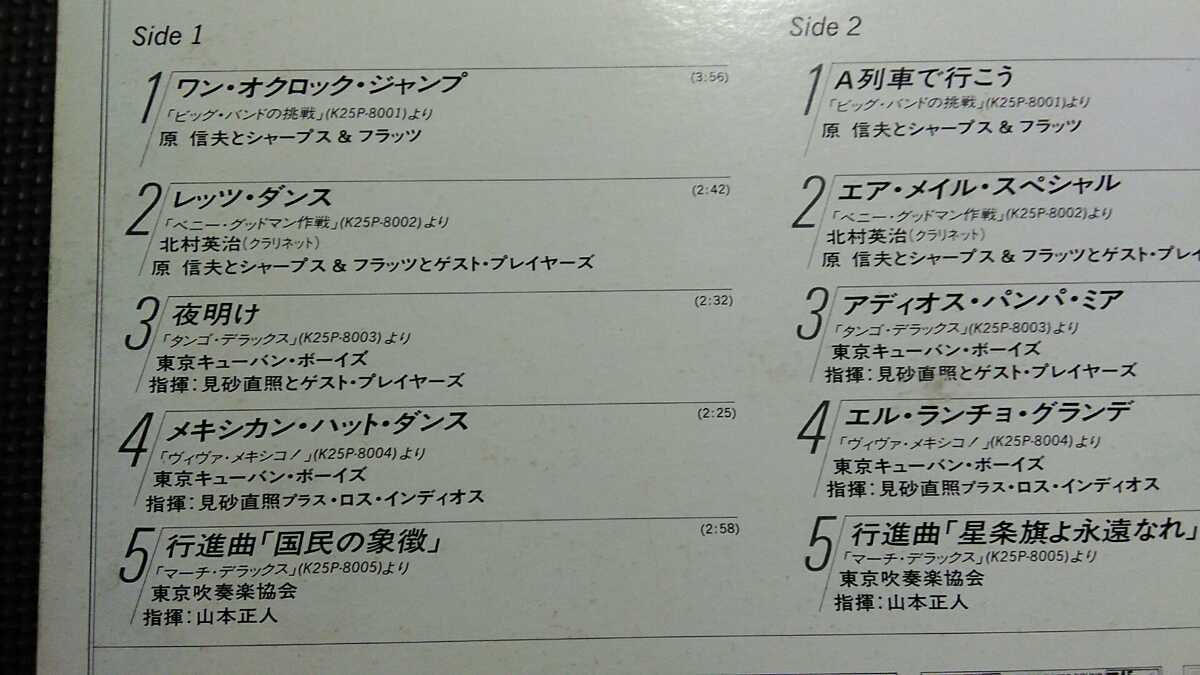 Side 1
1 ワン・オクロック・ジャンプ (3:56)
「ビッグ・バンドの挑戦」(K25P-8001)より
原 信夫とシャープス&フラッツ
2 レッツ・ダンス (2:42)
「ベニー・グッドマン作戦」(K25P-8002)より
北村英治(クラリネット)
原 信夫とシャープス&フラッツとゲスト・プレイヤーズ
3 夜明け (2:32)
「タンゴ・デラックス」(K25P-8003)より
東京キューバン・ボーイズ
指揮:見砂直照とゲスト・プレイヤーズ
4 メキシカン・ハット・ダンス (2:25)
「ヴィヴァ・メキシコ!」(K25P-8004)より
東京キューバン・ボーイズ
指揮:見砂直照プラス・ロス・インディオス
5 行進曲「国民の象徴」 (2:58)
「マーチ・デラックス」(K25P-8005)より
東京吹奏楽協会
指揮:山本正人
Side 2
1 A列車で行こう
「ビッグ・バンドの挑戦」(K25P-8001)より
原 信夫とシャープス&フラッツ
2 エア・メイル・スペシャル
「ベニー・グッドマン作戦」(K25P-8002)より
北村英治(クラリネット)
原 信夫とシャープス&フラッツとゲスト・プレイ
3 アディオス・パンパ・ミア
「タンゴ・デラックス」(K25P-8003)より
東京キューバン・ボーイズ
指揮:見砂直照とゲスト・プレイヤーズ
4 エル・ランチョ・グランデ
「ヴィヴァ・メキシコ!」(K25P-8004)より
東京キューバン・ボーイズ
指揮:見砂直照プラス・ロス・インディオス
5 行進曲「星条旗よ永遠なれ」
「マーチ・デラックス」(K25P-8005)より
東京吹奏楽協会
指揮:山本正人